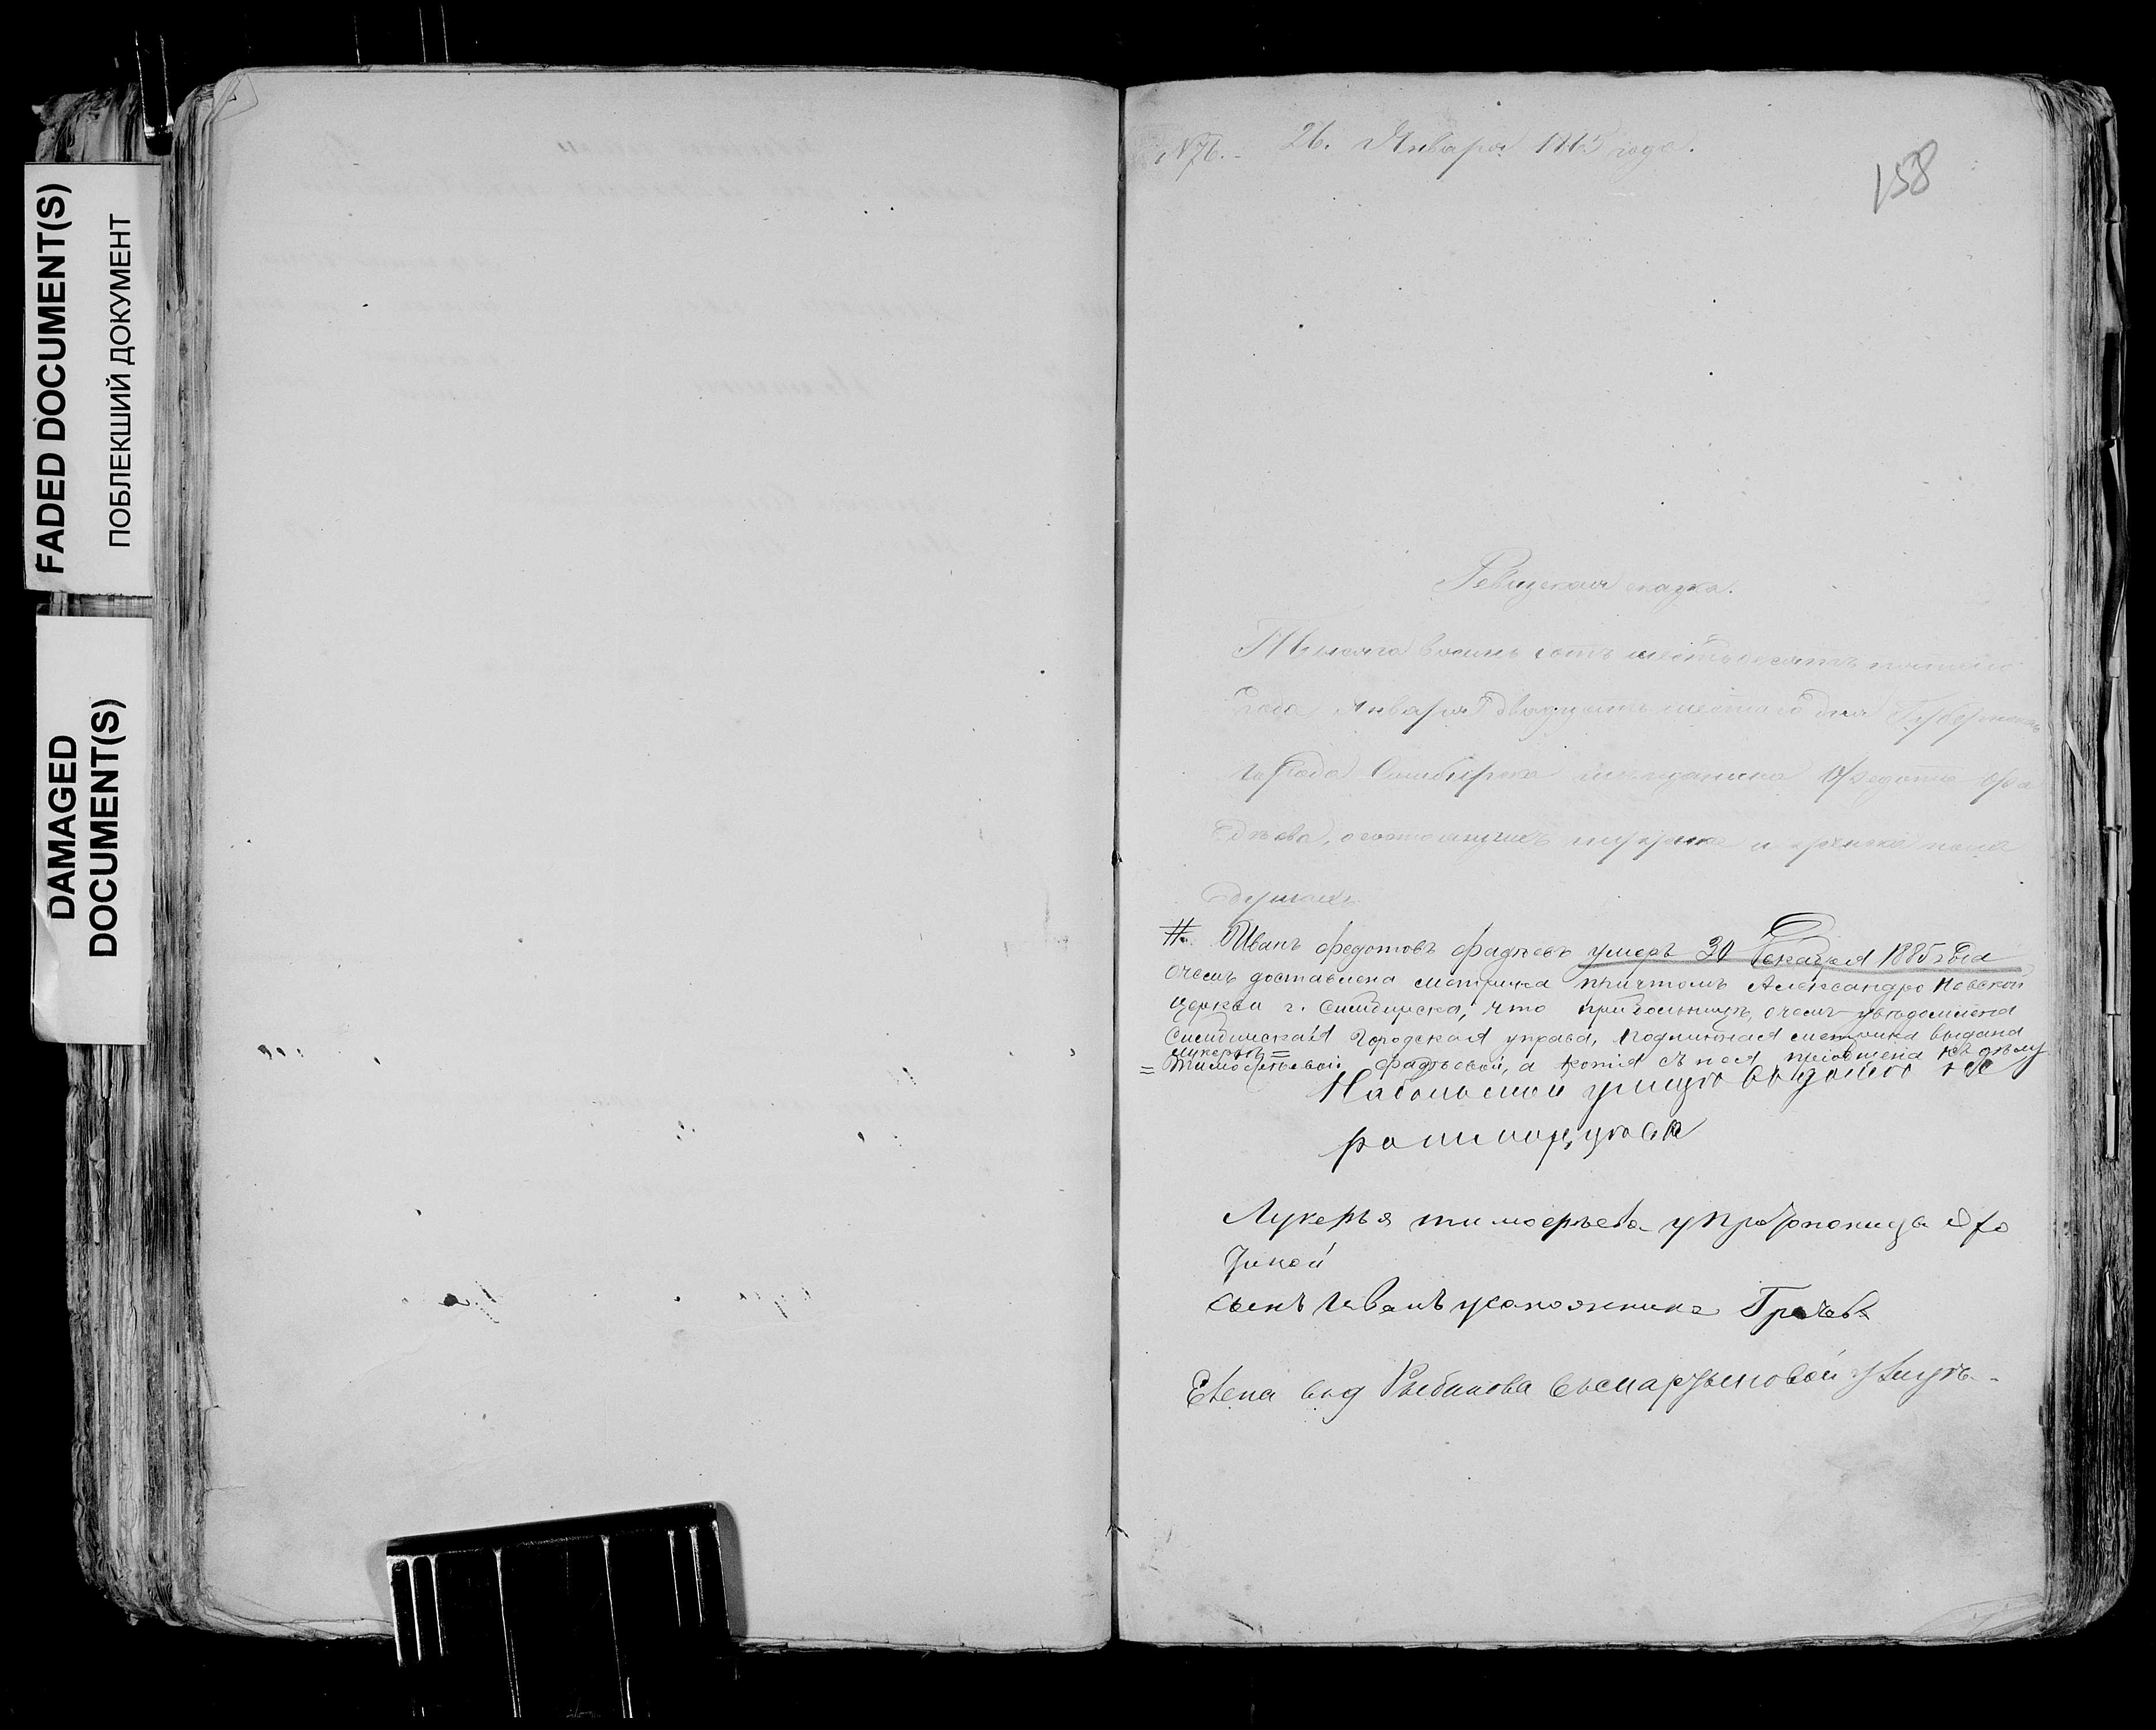 FADED DOCUMENT(S)
ПОБЛЕКШИЙ ДОКУМЕНТ
DAMAGED
DOCUMENT(S)
№76. 26. Января 1865 года.
158
Ревизская сказка.
Тысяча восемь сотъ шестьдесятъ пятого
года Января двадцать шестого дня Губернскаго
города Симбирска мѣщанина Федота Фа
дѣева, о состоящихъ мужска и женска пола
душахъ
#. Иванъ Федотовъ Фадѣевъ умеръ 30 Декабря 1885 года
о чемъ доставлена метрика причтомъ Александро Невской
церкви г. Симбирска, что при больницѣ, о чемъ увѣдомлена
Симбирская городская управа, подлинная метрика выдана
Лукерьѣ =
= Тимофѣевой Фадѣевой, а копія съ нея пріобщена къ дѣлу
Лукерья тимофѣева
сынъ Иванъ усапожника Грачева
Елена